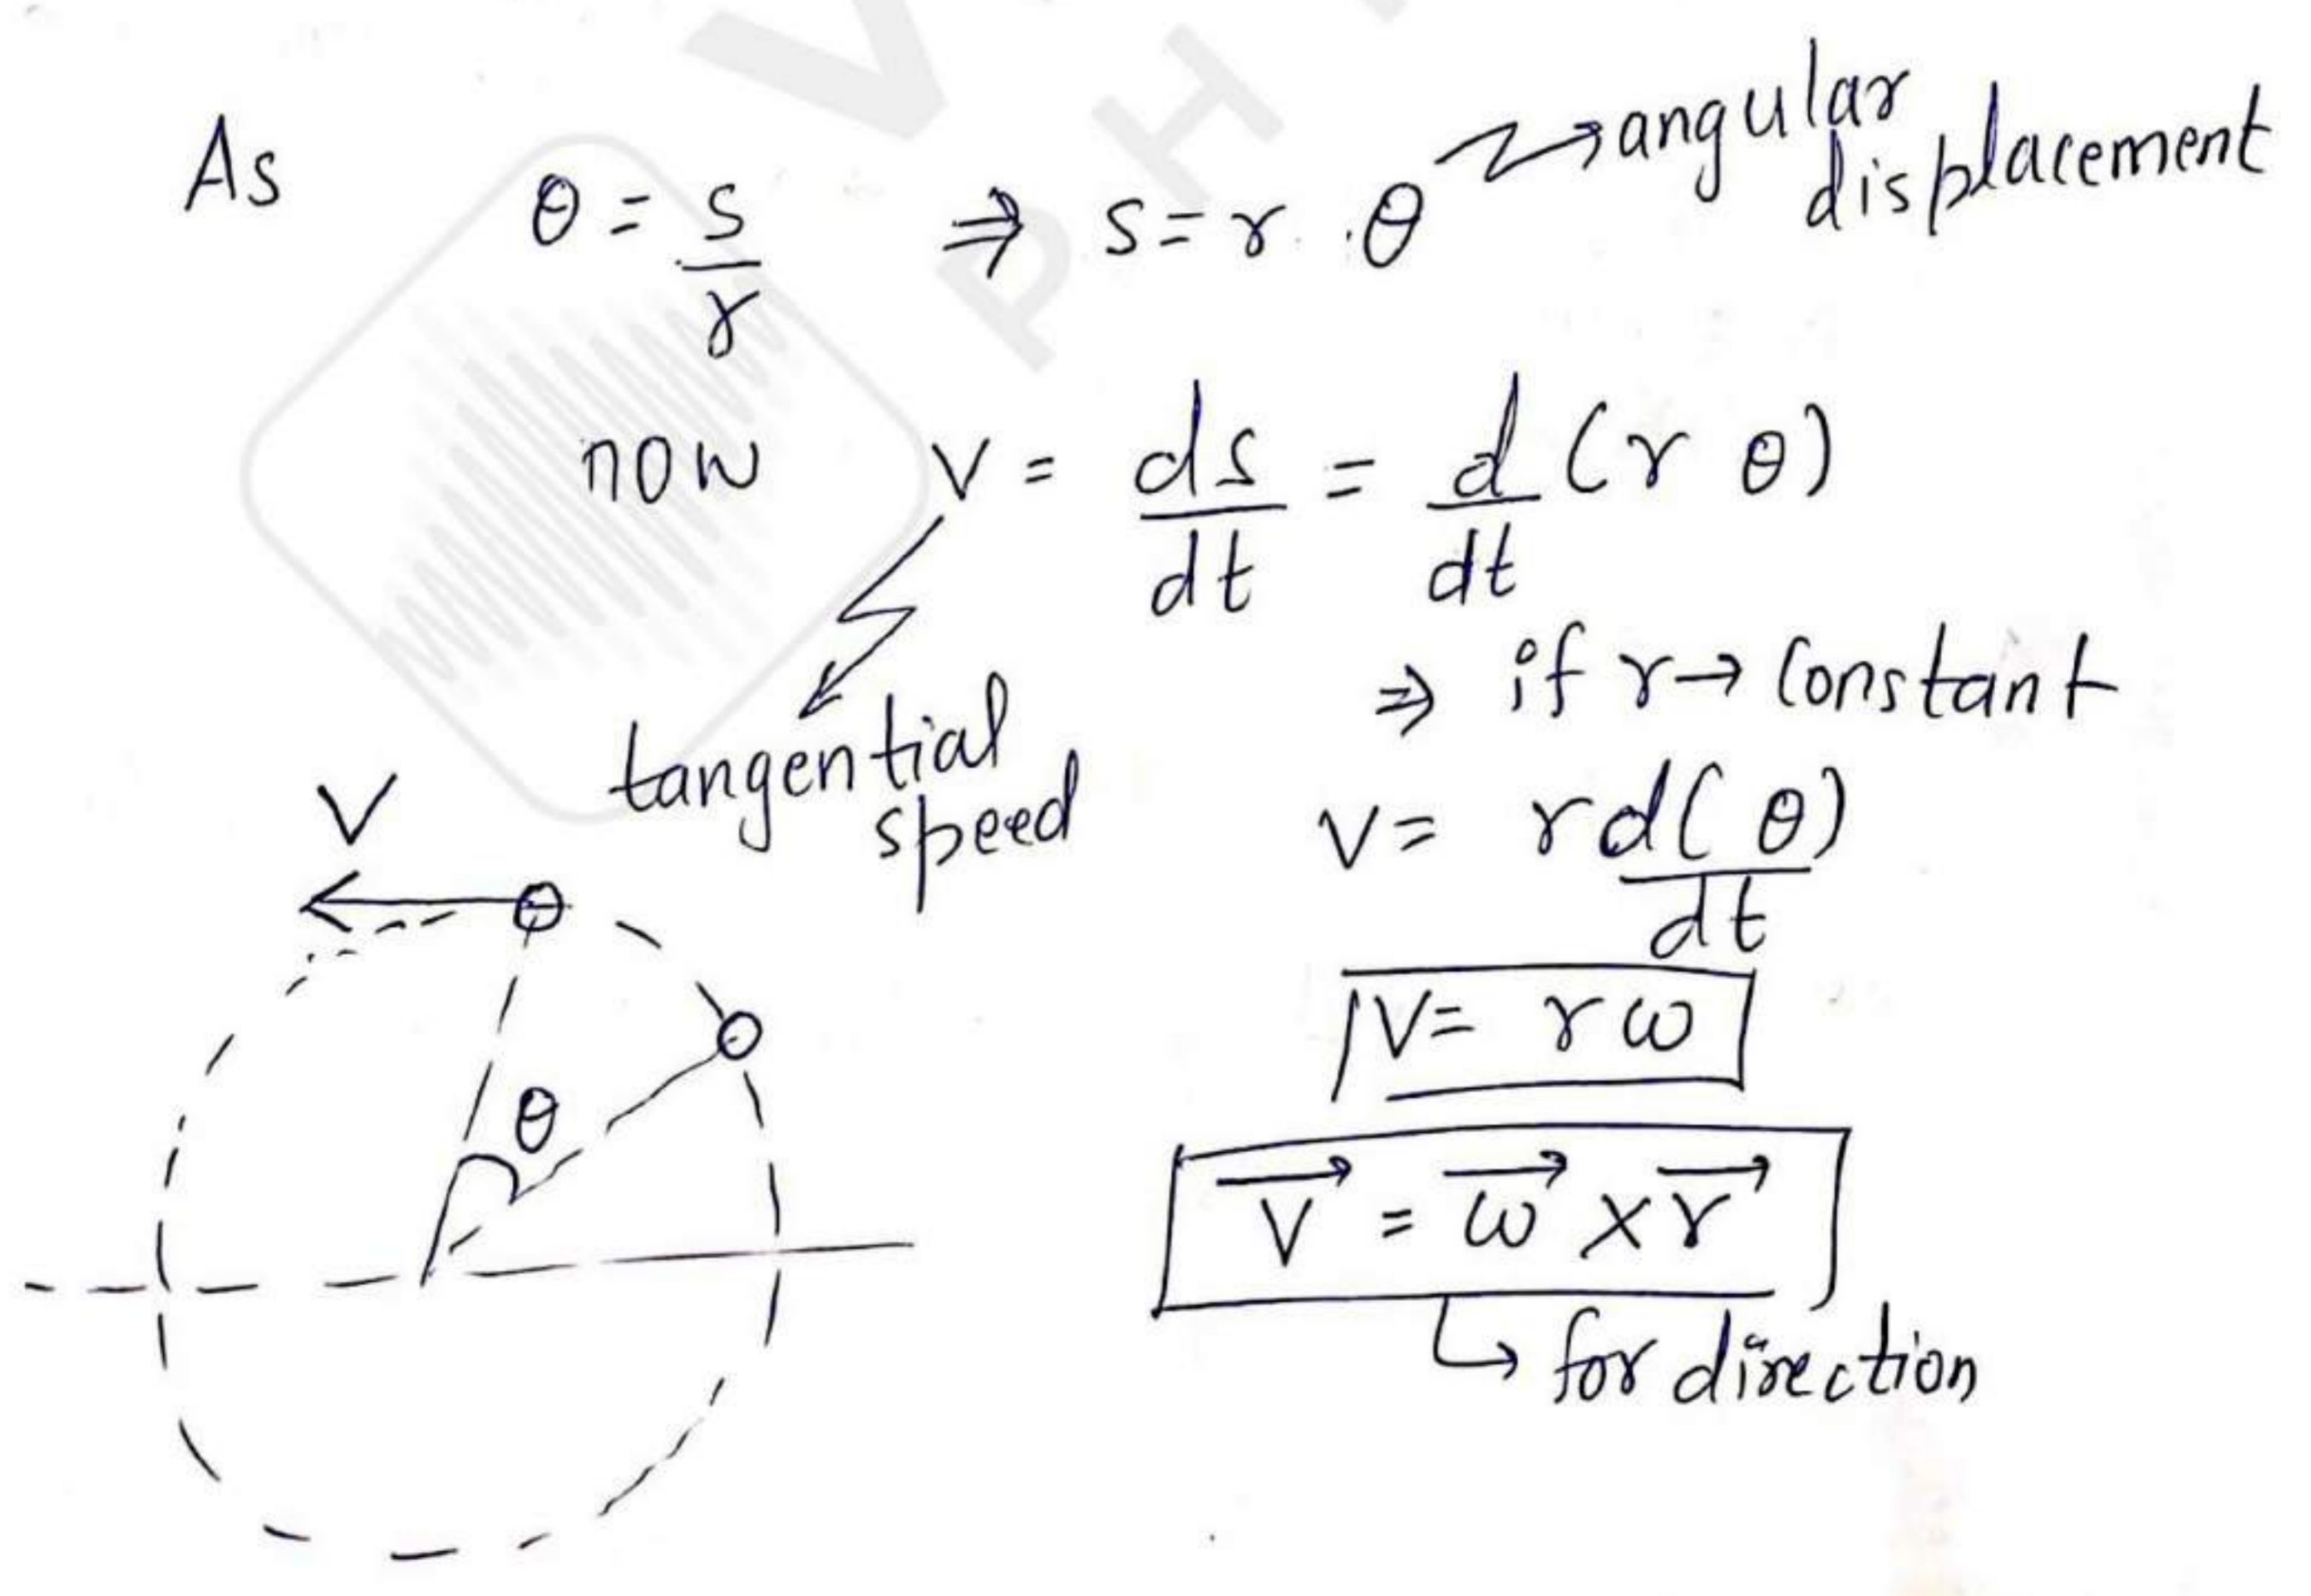 As θ = s/r ⇒ s = r . θ → angular displacement
now v = ds/dt = d/dt (r θ)
tangential speed
⇒ if r → constant
v = r d(θ)/dt
V
V = rω
θ
V⃗ = ω⃗ × r⃗
↳ for direction
V
P H